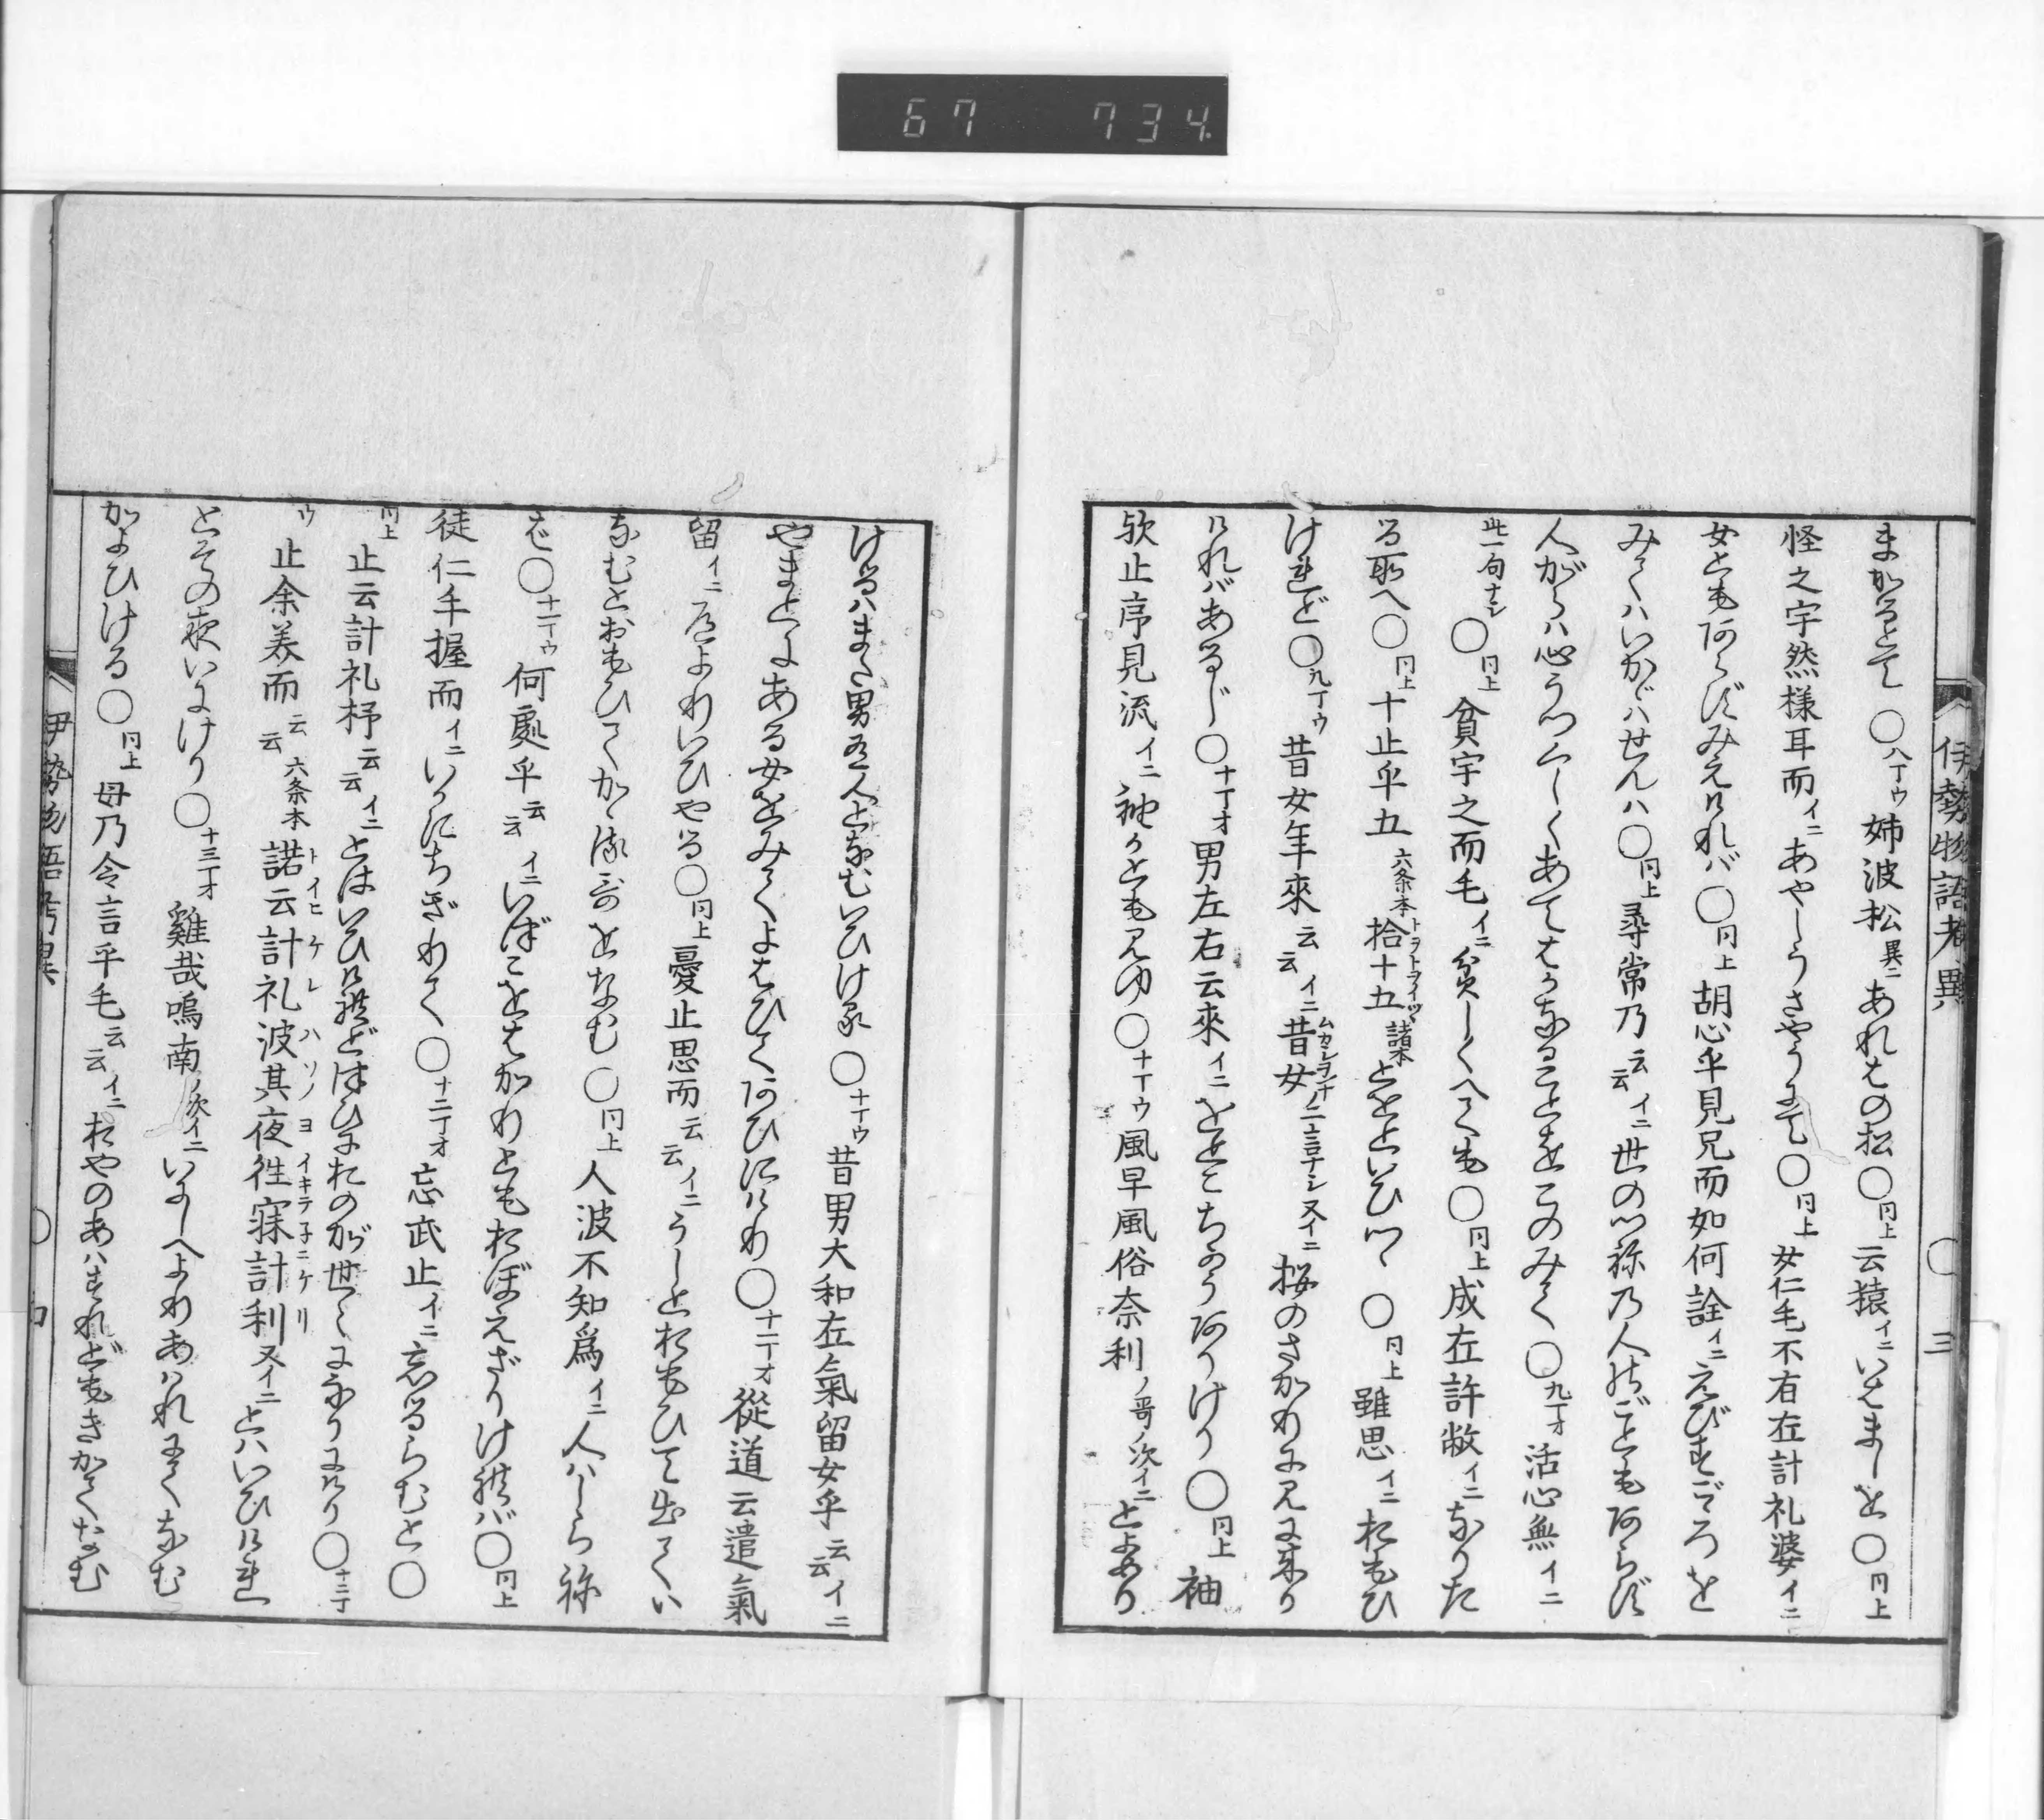 67 734.
伊勢物語考異 〇 三
まかるとて〇八丁ウ姉波松異ニあれはの松〇同上云猿イニいとましを〇同上
怪之宇然様耳而イニあやしうさやうにて〇同上女仁毛不有在計礼婆イニ
女ともあらずみえけれバ〇同上胡心乎見兄而如何詮イニえびすごゝろを
みてハいかゞハせんハ〇同上尋常乃云云イニ世のつ祢乃人のごともあらず
人がらハ心うつくしくあてはかなることをこのみて〇九丁オ活心無イニ
此一句ナシ〇同上貧宇之而毛イニ貧しくへても〇同上成左許敝イニなりた
る所へ〇同上十止乎五六条本拾十五諸本とをといひつゝ〇同上雖思イニおもひ
けれど〇九丁ウ昔女年來云云イニ昔女ノ二言ナシ又イニ桜のさかりに見に来り
けれバあるじ〇十丁オ男左右云來イニをとこちかうありけり〇同上袖
欤止序見流イニ袖かとも見ゆ〇十丁ウ風早風俗奈利ノ哥ノ次イニとよめり
けるハまた男る人となむいひける〇十丁ウ昔男大和在氣留女乎云云イニ
やまとにある女をみてよばひてあひにけり〇十一丁オ從道云遣氣
留イニ道よりいひやる〇同上憂止思而云云イニうしとおもひて出てい
なむとおもひてかゝる哥をなむ〇同上人波不知爲イニ人ハしら祢
ど〇十一丁ウ何處乎云云イニいづこをはかりともおぼえざりけれバ〇同上
徒仁手握而イニいかにちぎりて〇十二丁オ忘武止イニ忘るらむと〇
同上止云計礼杼云云イニとはいひけれどはひにおのが世ゝになりにけり〇十二丁
ウ止余美而云云六条本諾云計礼波其夜徃寐計利又イニとハいひけれ
とその夜いにけり〇十三丁オ雞哉鳴南ノ次イニいにしへよりあハれにてなむ
かよひける〇同上母乃令言乎毛云云イニおやのあハすれどもきかてなむ
伊勢物語考異 〇 四